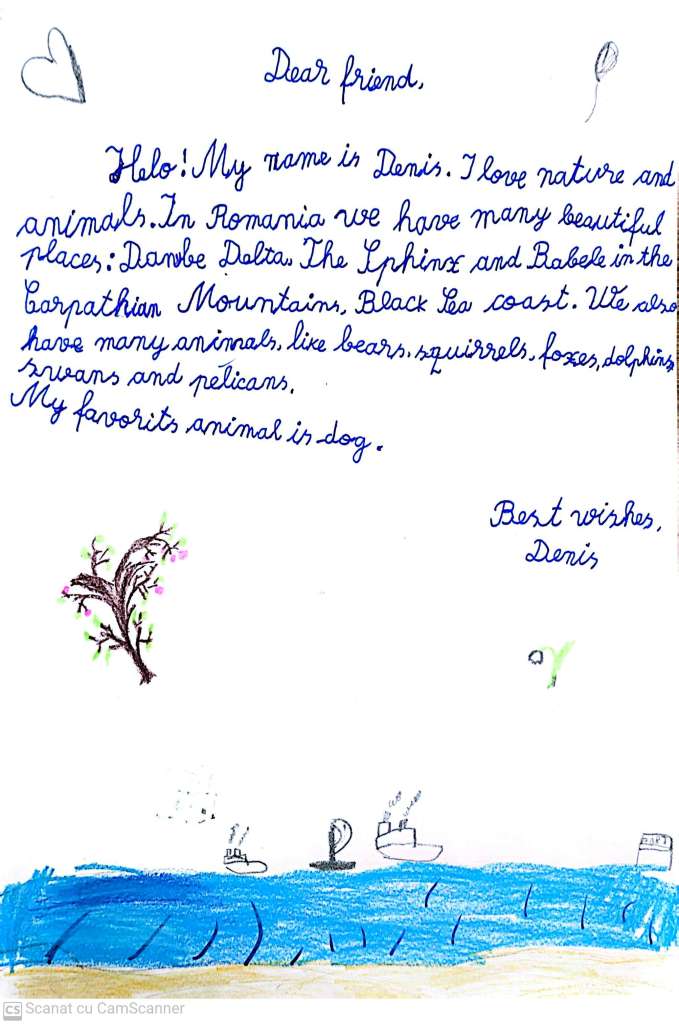 Dear friend,
Helo! My name is Denis. I love nature and
animals. In Romania we have many beautiful
places: Danube Delta, The Sphinx and Babele in the
Carpathian Mountains, Black Sea coast. We also
have many animals, like bears, squirrels, foxes, dolphins,
swans and pelicans.
My favorits animal is dog.
Best wishes,
Denis
CS Scanat cu CamScanner